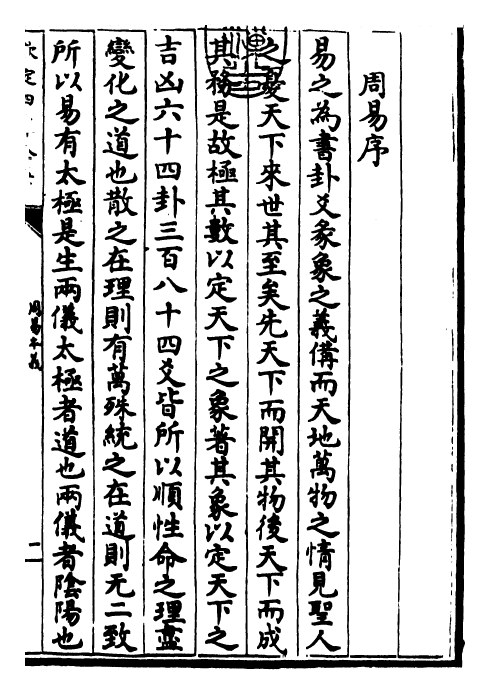 周易序
易之為書卦爻彖象之義備而天地萬物之情見聖人
之憂天下來世其至矣先天下而開其物後天下而成
其務是故極其數以定天下之象著其象以定天下之
吉凶六十四卦三百八十四爻皆所以順性命之理盡
變化之道也散之在理則有萬殊統之在道則无二致
所以易有太極是生兩儀太極者道也兩儀者陰陽也
周易本義
二